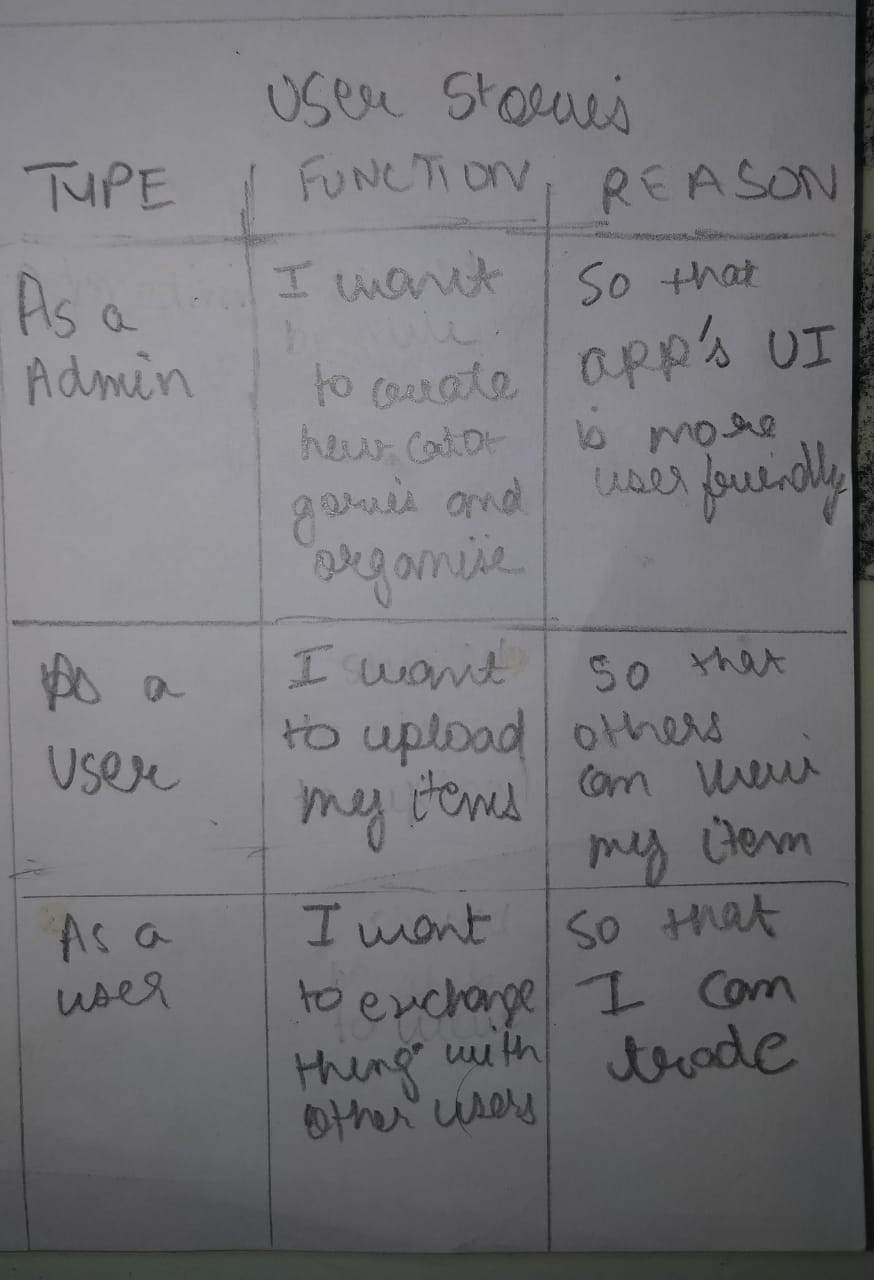 User Stories
TYPE
FUNCTION
REASON
As a
Admin
I want
to create
new cate
gories and
organise
So that
app's UI
is more
user friendly
As a
User
I want
to upload
my items
So that
others
can view
my item
As a
user
I want
to exchange
thing with
other users
So that
I can
trade